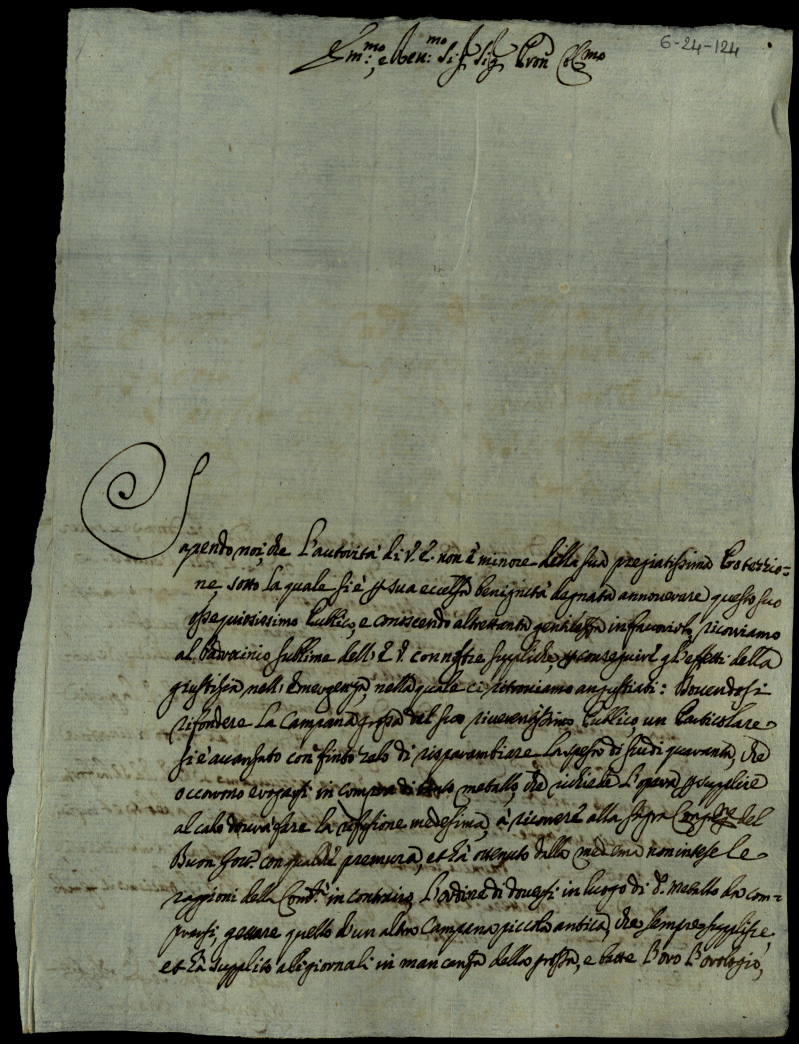 6-24-124
Em:mo, e Reu:mo Sig.r Sig.r Pron Col:mo
Sapendo noi, che l'autorità di V. E. non è minore della sua pregiatissima Protezzio=
ne, sotto la quale si è p sua eccelsa benignità degnata annoverare questo suo
ossequiosissimo Publico, e conoscendo altrettanta gentilezza in favorirlo, ricorriamo
al Padrocinio sublime dell' E. V. con nostre suppliche, p conseguire gl'effetti della
giustizia nell' emergenza, nella quale ci ritroviamo angustiati: Dovendosi
rifondere la Campana grossa del suo riverentissimo Publico, un Particolare
si è avanzato con finto zelo di risparambiare la spesa di scudi quaranta, che
occorrono erogarsi in compra di metallo, che richiede l'opera p supplire
al calo dovrà fare la refusione medesima, à ricorrere alla Sagra Congne del
Buon Gov.o con qualche premura, et hà ottenuto dalla medema non intese le
raggioni della Com.tà in contrario, l'ordine di doversi in luogo di d.o metallo da com=
prarsi, gettare quello d'un altra Campana piccola antica, che sempre supplisce
et hà supplito alli giornali in mancanza della grossa, e batte l'ore l'orologio,